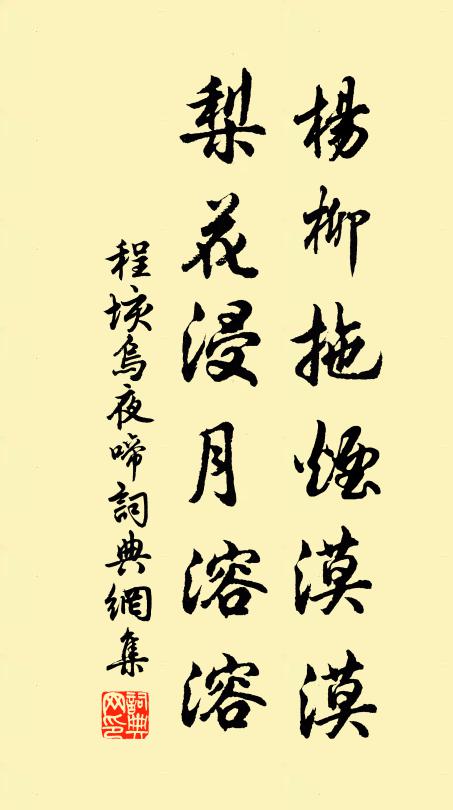 楊柳拖煙漠漠
梨花浸月溶溶
程垓烏夜啼詞典網集
詞典网印